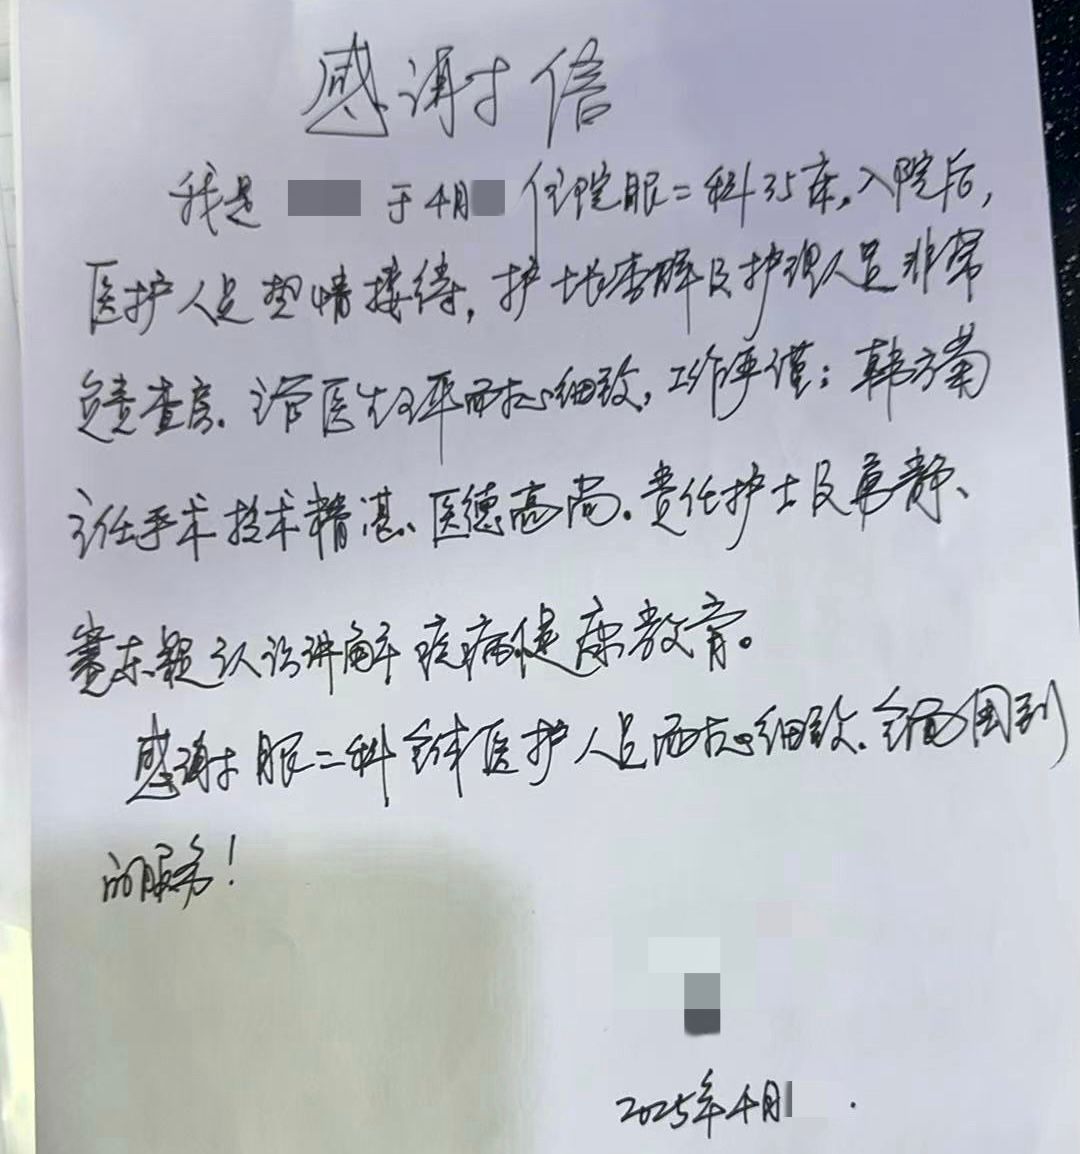 感谢信
我是 于4月 住院眼二科35床。入院后，
医护人员热情接待，护士长李辉及护理人员非常
负责查房。主管医生 耐心细致，工作严谨；韩方菊
主任手术技术精湛、医德高尚。责任护士 静、
东颖认认讲解疾病健康教育。
感谢眼二科全体医护人员耐心细致、全面周到
的服务！
2025年4月